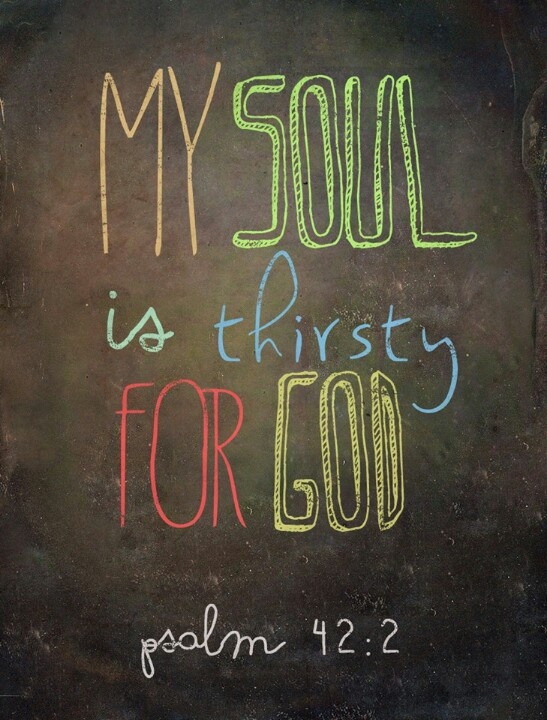 MY SOUL
is thirsty
FOR GOD
psalm 42:2